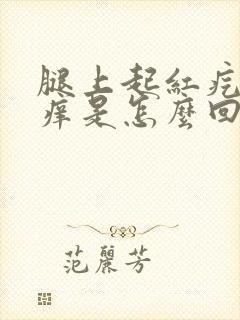 腿上起紅疙
癢是怎麼回
范麗芳